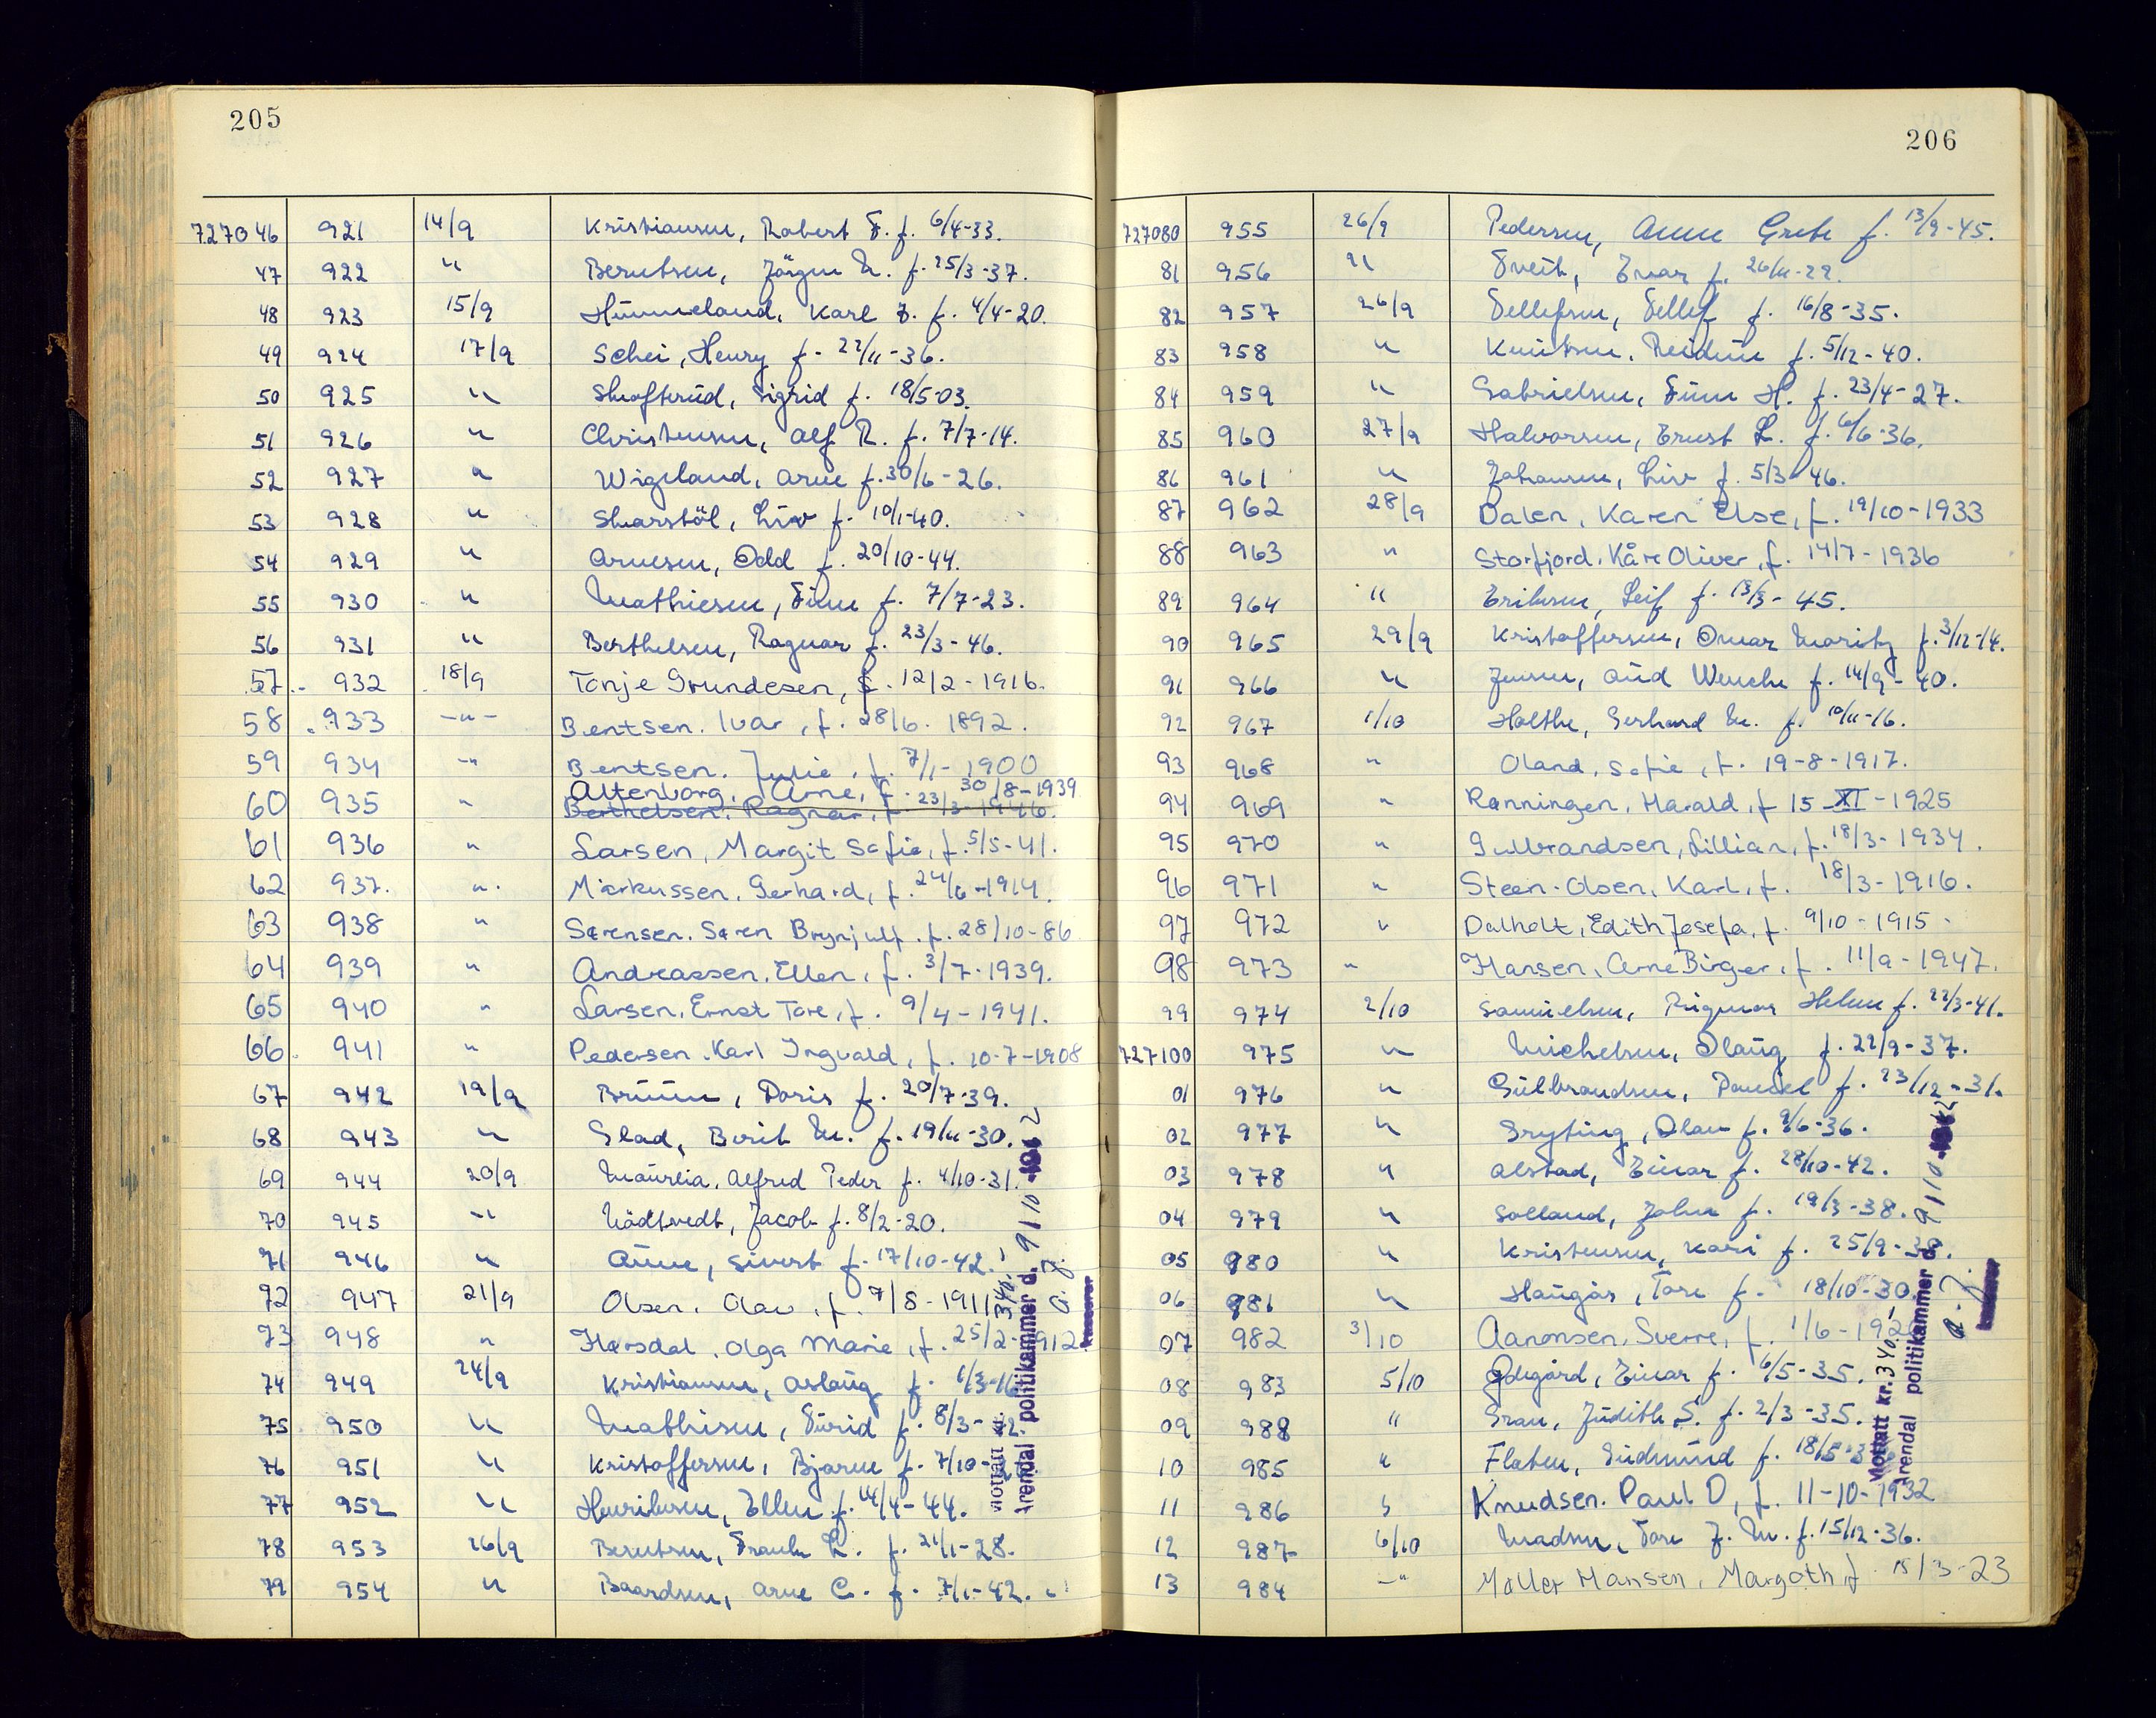 205
727046 921 14/9 Kristiansen, Robert T. f. 6/4-33.
47 922 " Berntsen, Jörgen M. f. 25/3-37.
48 923 15/9 Hümmeland, Karl J. f. 4/4-20.
49 924 17/9 Schei, Henry f. 22/11-36.
50 925 " Skofterüd, Sigrid f. 18/5-03.
51 926 " Christensen, Alf R. f. 7/7-14.
52 927 " Wigeland, Arne f. 30/6-26.
53 928 " Skarstöl, Liv f. 10/1-40.
54 929 " Arnesen, Odd f. 20/10-44.
55 930 " Mathiesen, Finn f. 7/7-23.
56 931 " Berthelsen, Ragnar f. 23/3-46.
57 932 18/9 Tonje Grundesen, f. 12/2-1916.
58 933 -"- Bentsen. Ivar, f. 28/6. 1892.
59 934 -" Bentsen. Julie, f. 7/1-1900
Altenborg, Arne, f. 30/8-1939
60 935 " Berthelsen. Ragnar, f. 23/3-1946.
61 936 " Larsen, Margit Sofie, f. 5/5-41.
62 937. " Markussen. Gerhard, f. 24/6-1914.
63 938 " Sørensen. Søren Brynjulf. f. 28/10-86
64 939 " Andreassen. Ellen, f. 3/7-1939.
65 940 " Larsen. Ernst Tore, f. 9/4-1941.
66. 941 " Pedersen. Karl Ingvald, f. 10-7-1908
67 942 19/9 Brüün, Doris f. 20/7-39.
68 943 " Glad, Berit M. f. 19/11-30.
69 944 20/9 Maürlia, Alfred Peder f. 4/10-31.
70 945 " Nödtvedt, Jacob f. 8/2-20.
71 946 " Aüne, Sivert f. 17/10-42.
72 947 21/9 Olsen. Olav, f. 7/8-1911
73 948 " Hørsdal. Olga Marie, f. 25/2-1912
74 949 24/9 Kristiansen, Aslaüg f. 1/3-16
75 950 " Mathisen, Türid f. 8/3-42.
76 951 " Kristoffersen, Bjarne f. 7/10-
77 952 " Henriksen, Ellen f. 14/4-44.
78 953 26/9 Berntsen, Frank L. f. 21/1-28.
79 954 " Baardsen, Arne C. f. 7/1-42.
Mottatt kr. 340,
Arendal politikammer d. 9/10 1962
kasserer
206
727080 955 26/9 Pedersen, Anne Grete f. 13/9-45.
81 956 " Tveit, Ivar f. 26/11-22.
82 957 26/9 Tellefsen, Tellef f. 16/8-35.
83 958 " Knütsen, Reidün f. 5/12-40.
84 959 " Gabrielsen, Finn H. f. 23/4-27.
85 960 27/9 Halvorsen, Ernst L. f. 6/6-36.
86 961 " Johansen, Liv f. 5/3-46.
87 962 28/9 Dalen, Karen Else, f. 19/10-1933
88 963 " Storfjord. Kåre Oliver, f. 14/7-1936
89 964 " Eriksen, Leif f. 13/3-45.
90 965 29/9 Kristoffersen, Omar Moritz f. 3/12-14.
91 966 " Jensen, Aüd Wenche f. 14/9-40.
92 967 1/10 Holthe, Gerhard M. f. 10/11-16.
93 968 " Oland. Sofie, f. 19-8-1917.
94 969 " Rønningen, Harald, f 15-XI-1925
95 970 " Gulbrandsen, Lillian, f. 18/3-1934.
96 971 " Steen-Olsen, Karl, f. 18/3-1916.
97 972 " Dalholt, Edith Josefa, f. 9/10-1915-
98 973 " Hansen, Arne Birger, f. 11/9-1947.
99 974 2/10 Samüelsen, Rigmor Helene f. 22/3-41.
727100 975 " Michelsen, Olaüg f. 22/9-37.
01 976 " Gülbrandsen, Daniel f. 23/12-31.
02 977 " Gryting, Olav f. 9/6-36.
03 978 " Alstad, Einar f. 28/10-42.
04 979 " Solland, John f. 19/3-38.
05 980 " Kristensen, Kari f. 25/9-38.
06 981 " Haügås, Tore f. 18/10-30
07 982 3/10 Aanonsen, Sverre, f. 1/6-192
08 983 5/10 Ødegård, Einar f. 6/5-35.
09 988 " Gran, Jüdith S. f. 2/3-35.
10 985 " Flaten, Güdmünd f. 18/5-3
11 986 " Knudsen. Paul O, f. 11-10-1932
12 987 6/10 Madsen, Tore J. M. f. 15/12-36.
13 984 -" Møller Hansen, Margoth f 15/3-23
Mottatt kr. 340,
Arendal politikammer d. 9/10 1962
kasserer